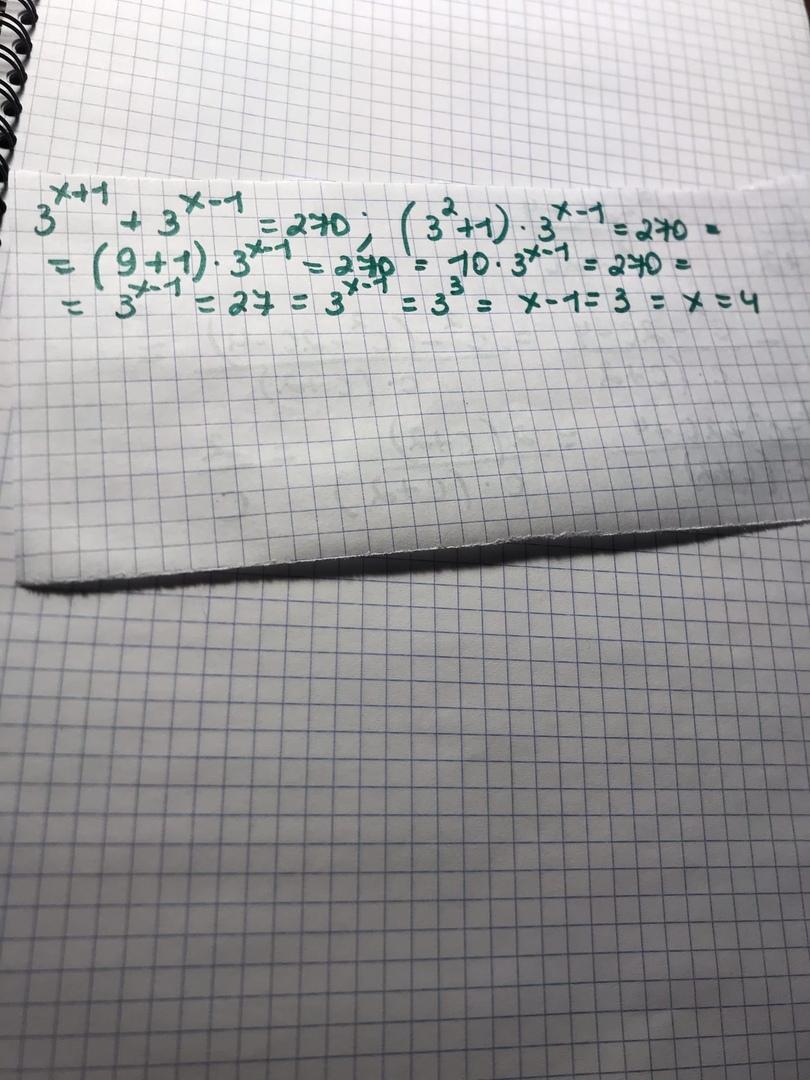 3^{x+1} + 3^{x-1} = 270; (3^2+1) · 3^{x-1} = 270 =
= (9+1) · 3^{x-1} = 270 = 10 · 3^{x-1} = 270 =
= 3^{x-1} = 27 = 3^{x-1} = 3^3 = x-1 = 3 = x = 4